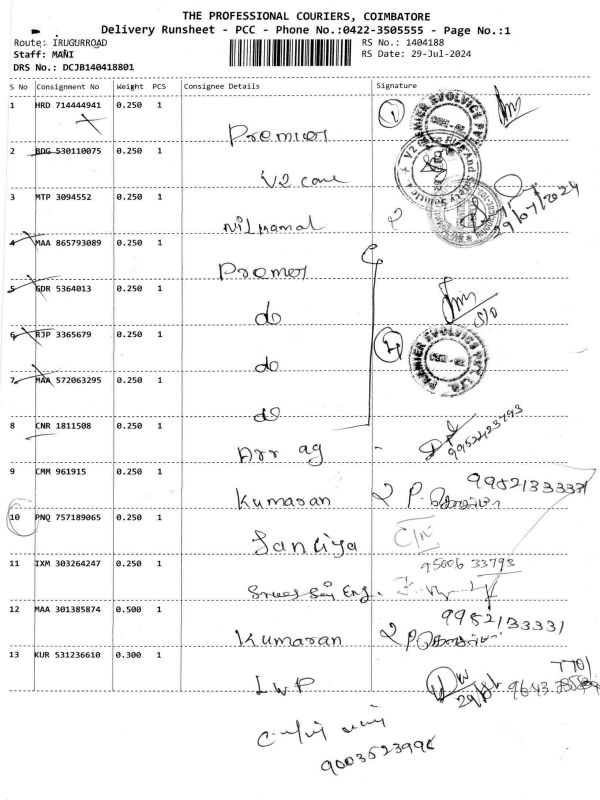 THE PROFESSIONAL COURIERS, COIMBATORE
Delivery Runsheet - PCC - Phone No.:0422-3505555 - Page No.:1
Route: IRUGURROAD
RS No.: 1404188
Staff: MANI
RS Date: 29-Jul-2024
DRS No.: DCJB140418801
S No Consignment No Weight PCS Consignee Details Signature
1 HRD 714444941 0.250 1
Premier
2 BDG 530110075 0.250 1
V2 care
3 MTP 3094552 0.250 1
29/07/2024
4 MAA 865793089 0.250 1
Premer
5 GDR 5364013 0.250 1
do
6 RJP 3365679 0.250 1
do
7 MAA 572063295 0.250 1
do
8 CNR 1811508 0.250 1
Arr ag
9952423793
9 CMM 961915 0.250 1
Kumaran
9952133331
10 PNQ 757189065 0.250 1
11 IXM 303264247 0.250 1
95006 33793
Eng.
12 MAA 301385874 0.500 1
Kumaran
9952133331
13 KUR 531236610 0.300 1
LWP